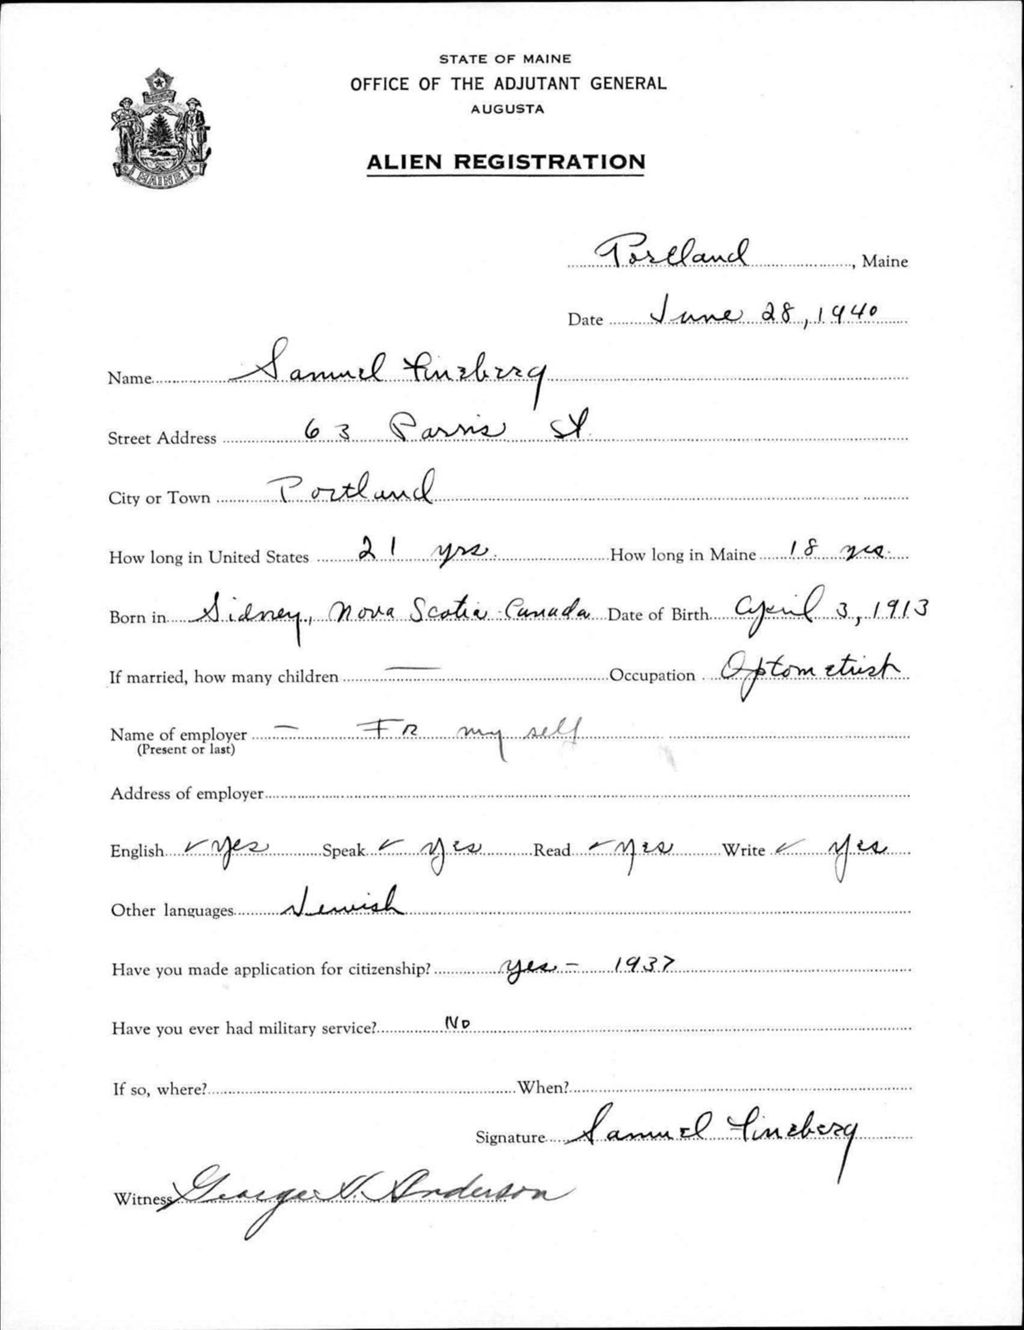 STATE OF MAINE
OFFICE OF THE ADJUTANT GENERAL
AUGUSTA
ALIEN REGISTRATION
MAINE
Portland, Maine
Date June 28, 1940
Name Samuel Fineberg
Street Address 63 Parris St.
City or Town Portland
How long in United States 21 yrs. How long in Maine 18 yrs.
Born in Sidney, Nova Scotia Canada Date of Birth April 3, 1913
If married, how many children — Occupation Optometrist
Name of employer — For my self
(Present or last)
Address of employer
English ✓ Yes Speak ✓ Yes Read ✓ Yes Write ✓ Yes
Other languages Jewish
Have you made application for citizenship? Yes - 1937
Have you ever had military service? No
If so, where? When?
Signature Samuel Fineberg
Witness George N. Anderson